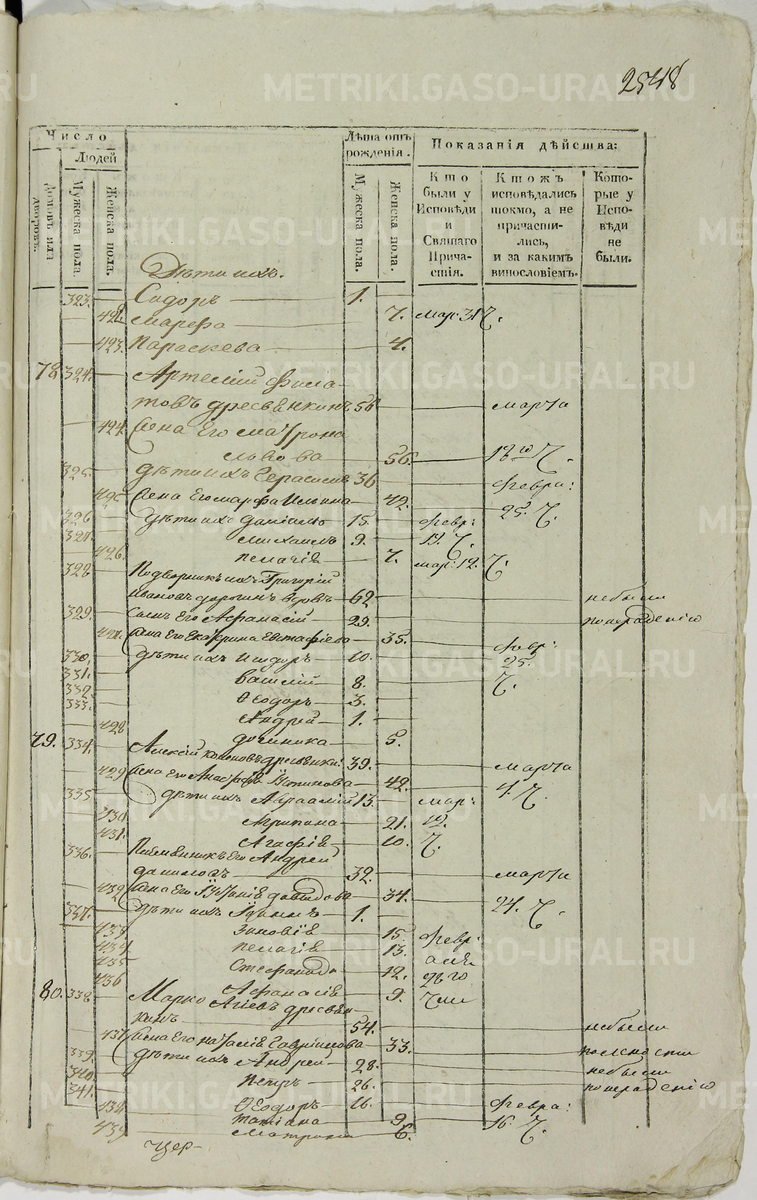 2548
Число
Людей
Домовъ или дворовъ.
Мужеска пола.
Женска пола.
Лѣта отъ рожденія.
Мужеска пола.
Женска пола.
Показанія дѣйства:
Кто были у Исповѣди и Святаго Причастія.
Ктожъ исповѣдались токмо, а не причастились, и за какимъ винословіемъ.
Которые у Исповѣди не были.
Дѣти ихъ.
323. Сидоръ 1.
422. Марфа 7. мар: 31 Ч.
423. Параскева 4.
78. 324. Артемій Фила
товъ Дресвянкинъ 56 марта
424. Жена Его Матрона
Львова 56. 18го Ч.
325. дѣти ихъ Герасимъ 36 февра:
425 Жена Его Марфа Ильина 42. 25. Ч.
326 дѣти ихъ Даніилъ 15. февр:
327. Михаилъ 9. 13. Ч.
426. Пелагія 7. мар: 12. Ч.
328 Подворникъ ихъ Григорій
Ивановъ 62 небыли
329. Сынъ Его Афанасій 29. понерадѣнію
427. Жена Его Екатерина Евстафіева 35. февр:
330. дѣти ихъ Исидоръ 10. 25.
331. Василій 8. Ч.
332. Ѳеодоръ 3.
333. Андрей 1.
428 Домника 5.
79. 334. Алексій Дресвянкинъ 39. марта
429 Жена Его Устинова 42. 4. Ч.
335 дѣти ихъ Авраамій 13. мар:
430 Агрипина 21. 19.
431. Агафія 10. Ч.
336. Племянникъ Его Андрей
Даниловъ 32. марта
432 Жена Его Давидова 34. 24. Ч.
337. дѣти ихъ Іоаннъ 1.
433 Зиновія 15. февр:
434 Пелагія 13.
435 Стефанида 12.
436 Афанасія 9.
80. 338. Марко Агіевъ Дресвян
кинъ 54. небыли
437 Жена Его Наталія Гавриилова 33.
339. дѣти ихъ Андрей 28. небыли
340. Петръ 26. понерадѣнію
341. Ѳеодоръ 16. февра:
438 Татіана 9. 16. Ч.
439 Матрона 6.
Цер-
METRIKI.GASO-URAL.RU